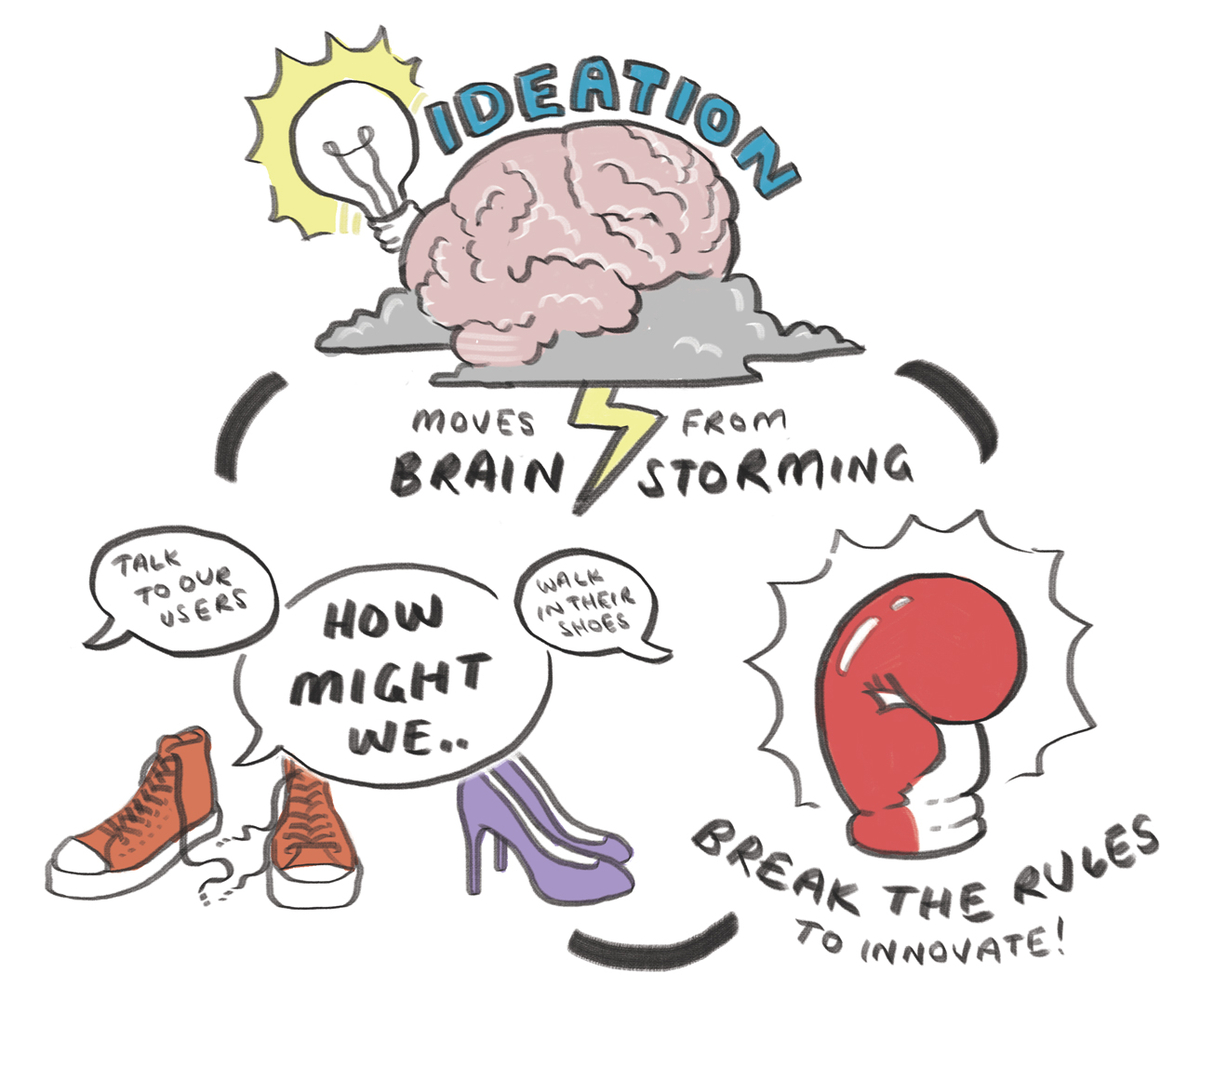 IDEATION
MOVES FROM
BRAIN STORMING
TALK
TO OUR
USERS
HOW
MIGHT
WE..
WALK
IN THEIR
SHOES
BREAK THE RULES
TO INNOVATE!